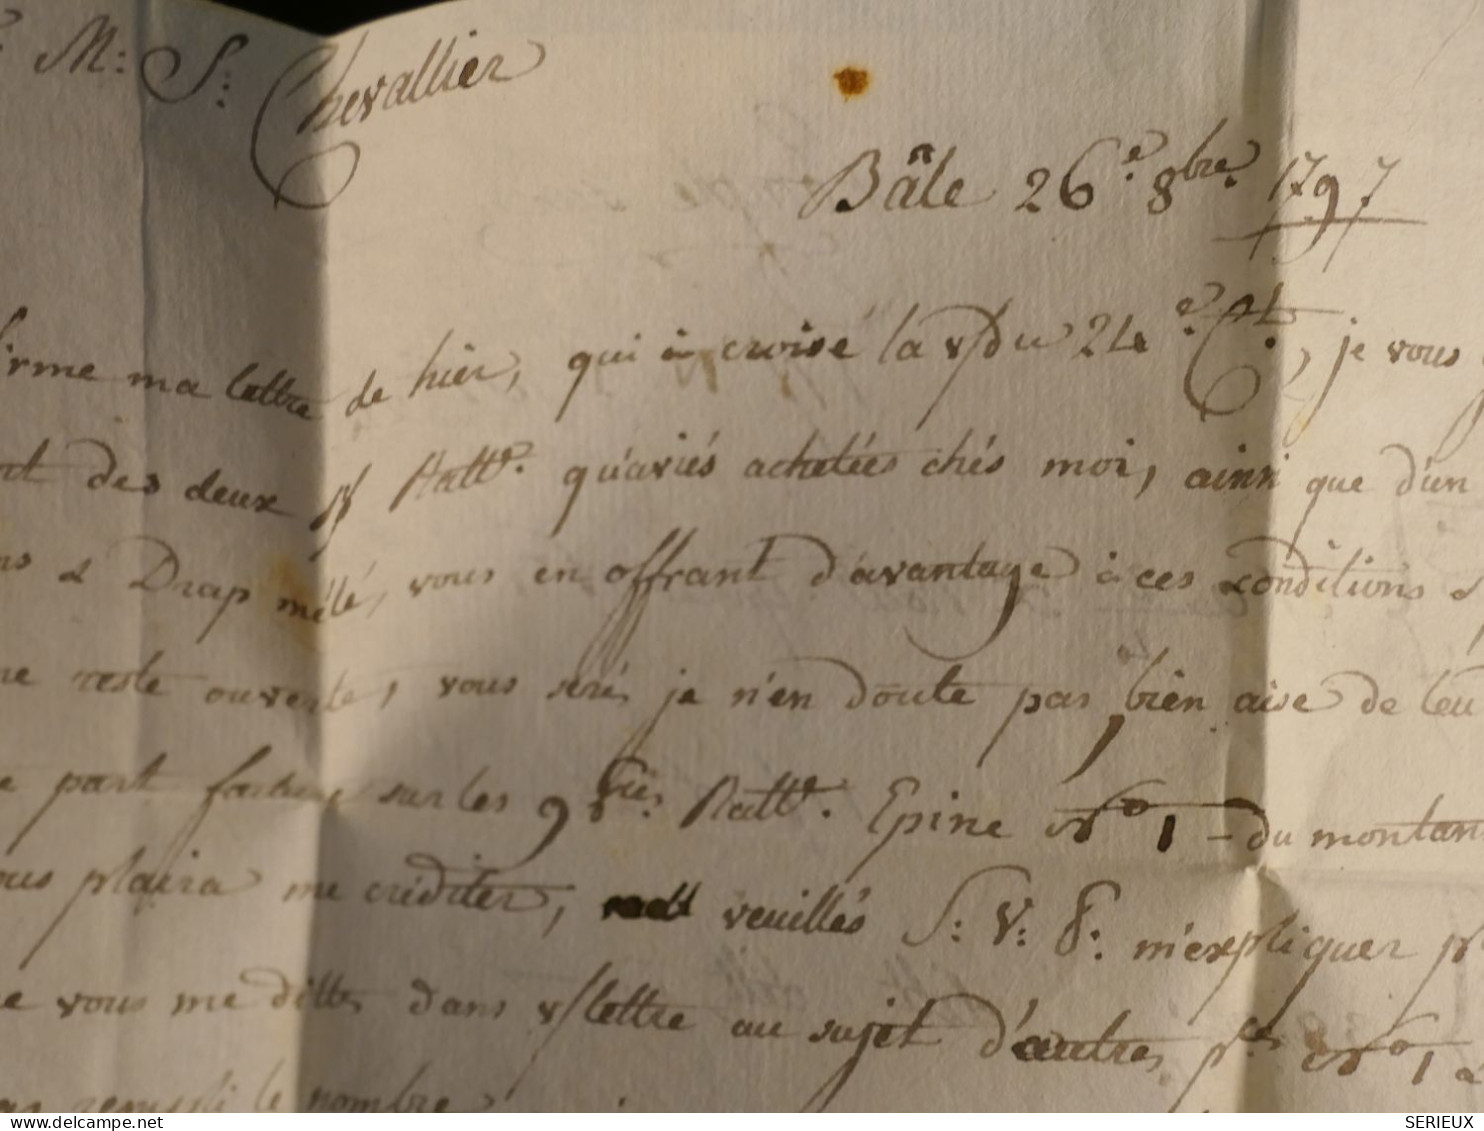 M: S: Chevallier
Bâle 26.e 8bre. 1797
irme ma lettre de hier, qui à croisé la v/ du 24.e Ct., je vous
nt des deux p Ratt.e qu'aviés achetées chés moi, ainsi que d'un
ns & Drap mêlé, vous en offrant d'avantage à ces conditions &
me reste ouverte, vous serés je n'en doute pas, bien aise de leu
e part facture sur les 9 Ratt.e. Epine No 1 - du montan
ous plaira me créditer, veuillés S: V: P: m'expliquer p
e vous me dittes dans v/ lettre au sujet d'autres p.ces No 1 &
as rempli le nombre
SERIEUX